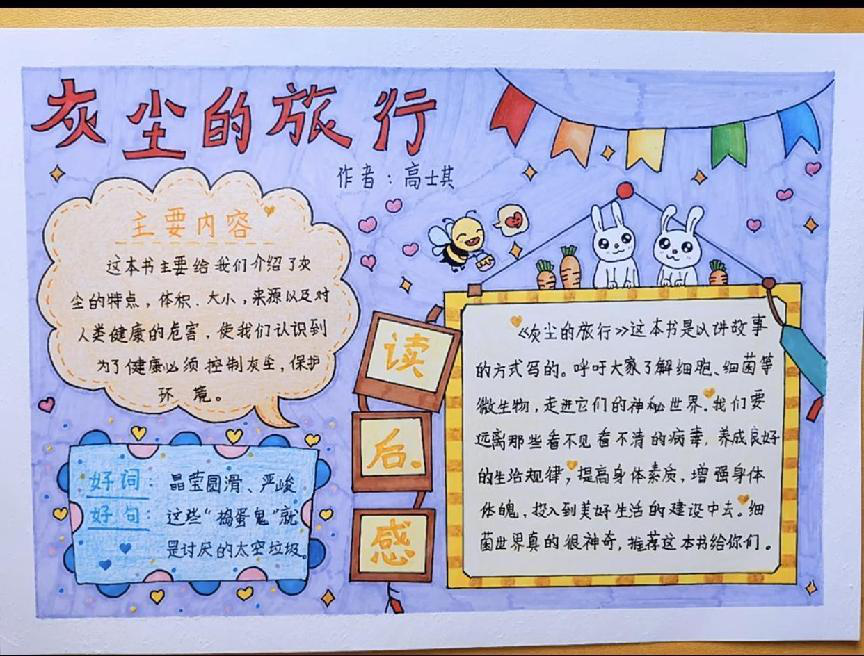 灰尘的旅行
作者：高士其
主要内容
这本书主要给我们介绍了灰
尘的特点，体积、大小，来源以及对
人类健康的危害，使我们认识到
为了健康必须控制灰尘，保护
环境。
好词：晶莹圆滑、严峻
好句：这些“捣蛋鬼”就
是讨厌的太空垃圾。
读后感
《灰尘的旅行》这本书是以讲故事
的方式写的。呼吁大家了解细胞、细菌等
微生物，走进它们的神秘世界。我们要
远离那些看不见看不清的病毒，养成良好
的生活规律，提高身体素质，增强身体
体魄，投入到美好生活的建设中去。细
菌世界真的很神奇，推荐这本书给你们。